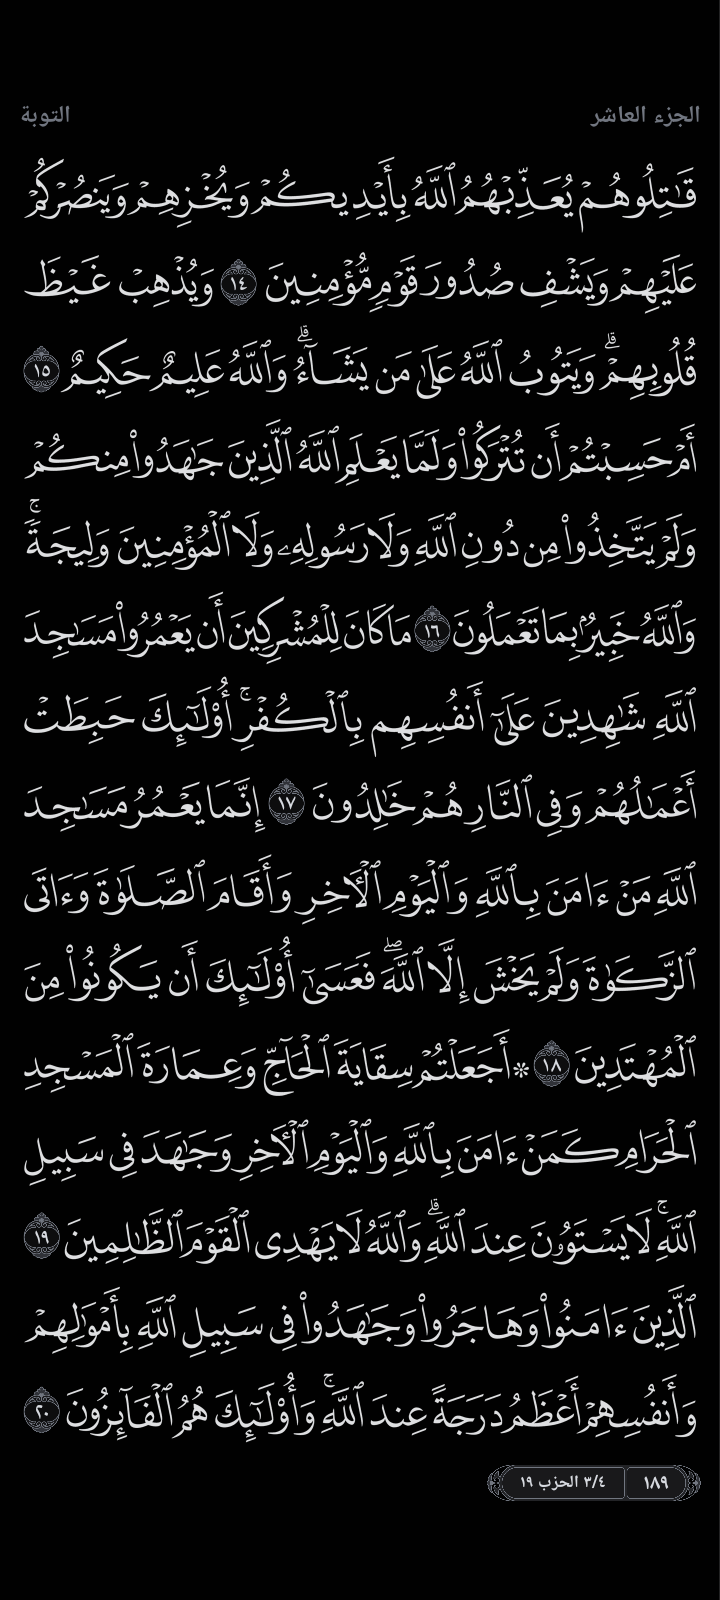 الجزء العاشر
التوبة
قَٰتِلُوهُمْ يُعَذِّبْهُمُ ٱللَّهُ بِأَيْدِيكُمْ وَيُخْزِهِمْ وَيَنصُرْكُمْ
عَلَيْهِمْ وَيَشْفِ صُدُورَ قَوْمٍ مُّؤْمِنِينَ ١٤ وَيُذْهِبْ غَيْظَ
قُلُوبِهِمْۗ وَيَتُوبُ ٱللَّهُ عَلَىٰ مَن يَشَآءُۗ وَٱللَّهُ عَلِيمٌ حَكِيمٌ ١٥
أَمْ حَسِبْتُمْ أَن تُتْرَكُوا۟ وَلَمَّا يَعْلَمِ ٱللَّهُ ٱلَّذِينَ جَٰهَدُوا۟ مِنكُمْ
وَلَمْ يَتَّخِذُوا۟ مِن دُونِ ٱللَّهِ وَلَا رَسُولِهِۦ وَلَا ٱلْمُؤْمِنِينَ وَلِيجَةًۚ
وَٱللَّهُ خَبِيرٌۢ بِمَا تَعْمَلُونَ ١٦ مَا كَانَ لِلْمُشْرِكِينَ أَن يَعْمُرُوا۟ مَسَٰجِدَ
ٱللَّهِ شَٰهِدِينَ عَلَىٰٓ أَنفُسِهِم بِٱلْكُفْرِۚ أُو۟لَٰٓئِكَ حَبِطَتْ
أَعْمَٰلُهُمْ وَفِى ٱلنَّارِ هُمْ خَٰلِدُونَ ١٧ إِنَّمَا يَعْمُرُ مَسَٰجِدَ
ٱللَّهِ مَنْ ءَامَنَ بِٱللَّهِ وَٱلْيَوْمِ ٱلْءَاخِرِ وَأَقَامَ ٱلصَّلَوٰةَ وَءَاتَى
ٱلزَّكَوٰةَ وَلَمْ يَخْشَ إِلَّا ٱللَّهَۖ فَعَسَىٰٓ أُو۟لَٰٓئِكَ أَن يَكُونُوا۟ مِنَ
ٱلْمُهْتَدِينَ ١٨ ۞ أَجَعَلْتُمْ سِقَايَةَ ٱلْحَآجِّ وَعِمَارَةَ ٱلْمَسْجِدِ
ٱلْحَرَامِ كَمَنْ ءَامَنَ بِٱللَّهِ وَٱلْيَوْمِ ٱلْءَاخِرِ وَجَٰهَدَ فِى سَبِيلِ
ٱللَّهِۚ لَا يَسْتَوُۥنَ عِندَ ٱللَّهِۗ وَٱللَّهُ لَا يَهْدِى ٱلْقَوْمَ ٱلظَّٰلِمِينَ ١٩
ٱلَّذِينَ ءَامَنُوا۟ وَهَاجَرُوا۟ وَجَٰهَدُوا۟ فِى سَبِيلِ ٱللَّهِ بِأَمْوَٰلِهِمْ
وَأَنفُسِهِمْ أَعْظَمُ دَرَجَةً عِندَ ٱللَّهِۚ وَأُو۟لَٰٓئِكَ هُمُ ٱلْفَآئِزُونَ ٢٠
١٨٩
٣/٤ الحزب ١٩